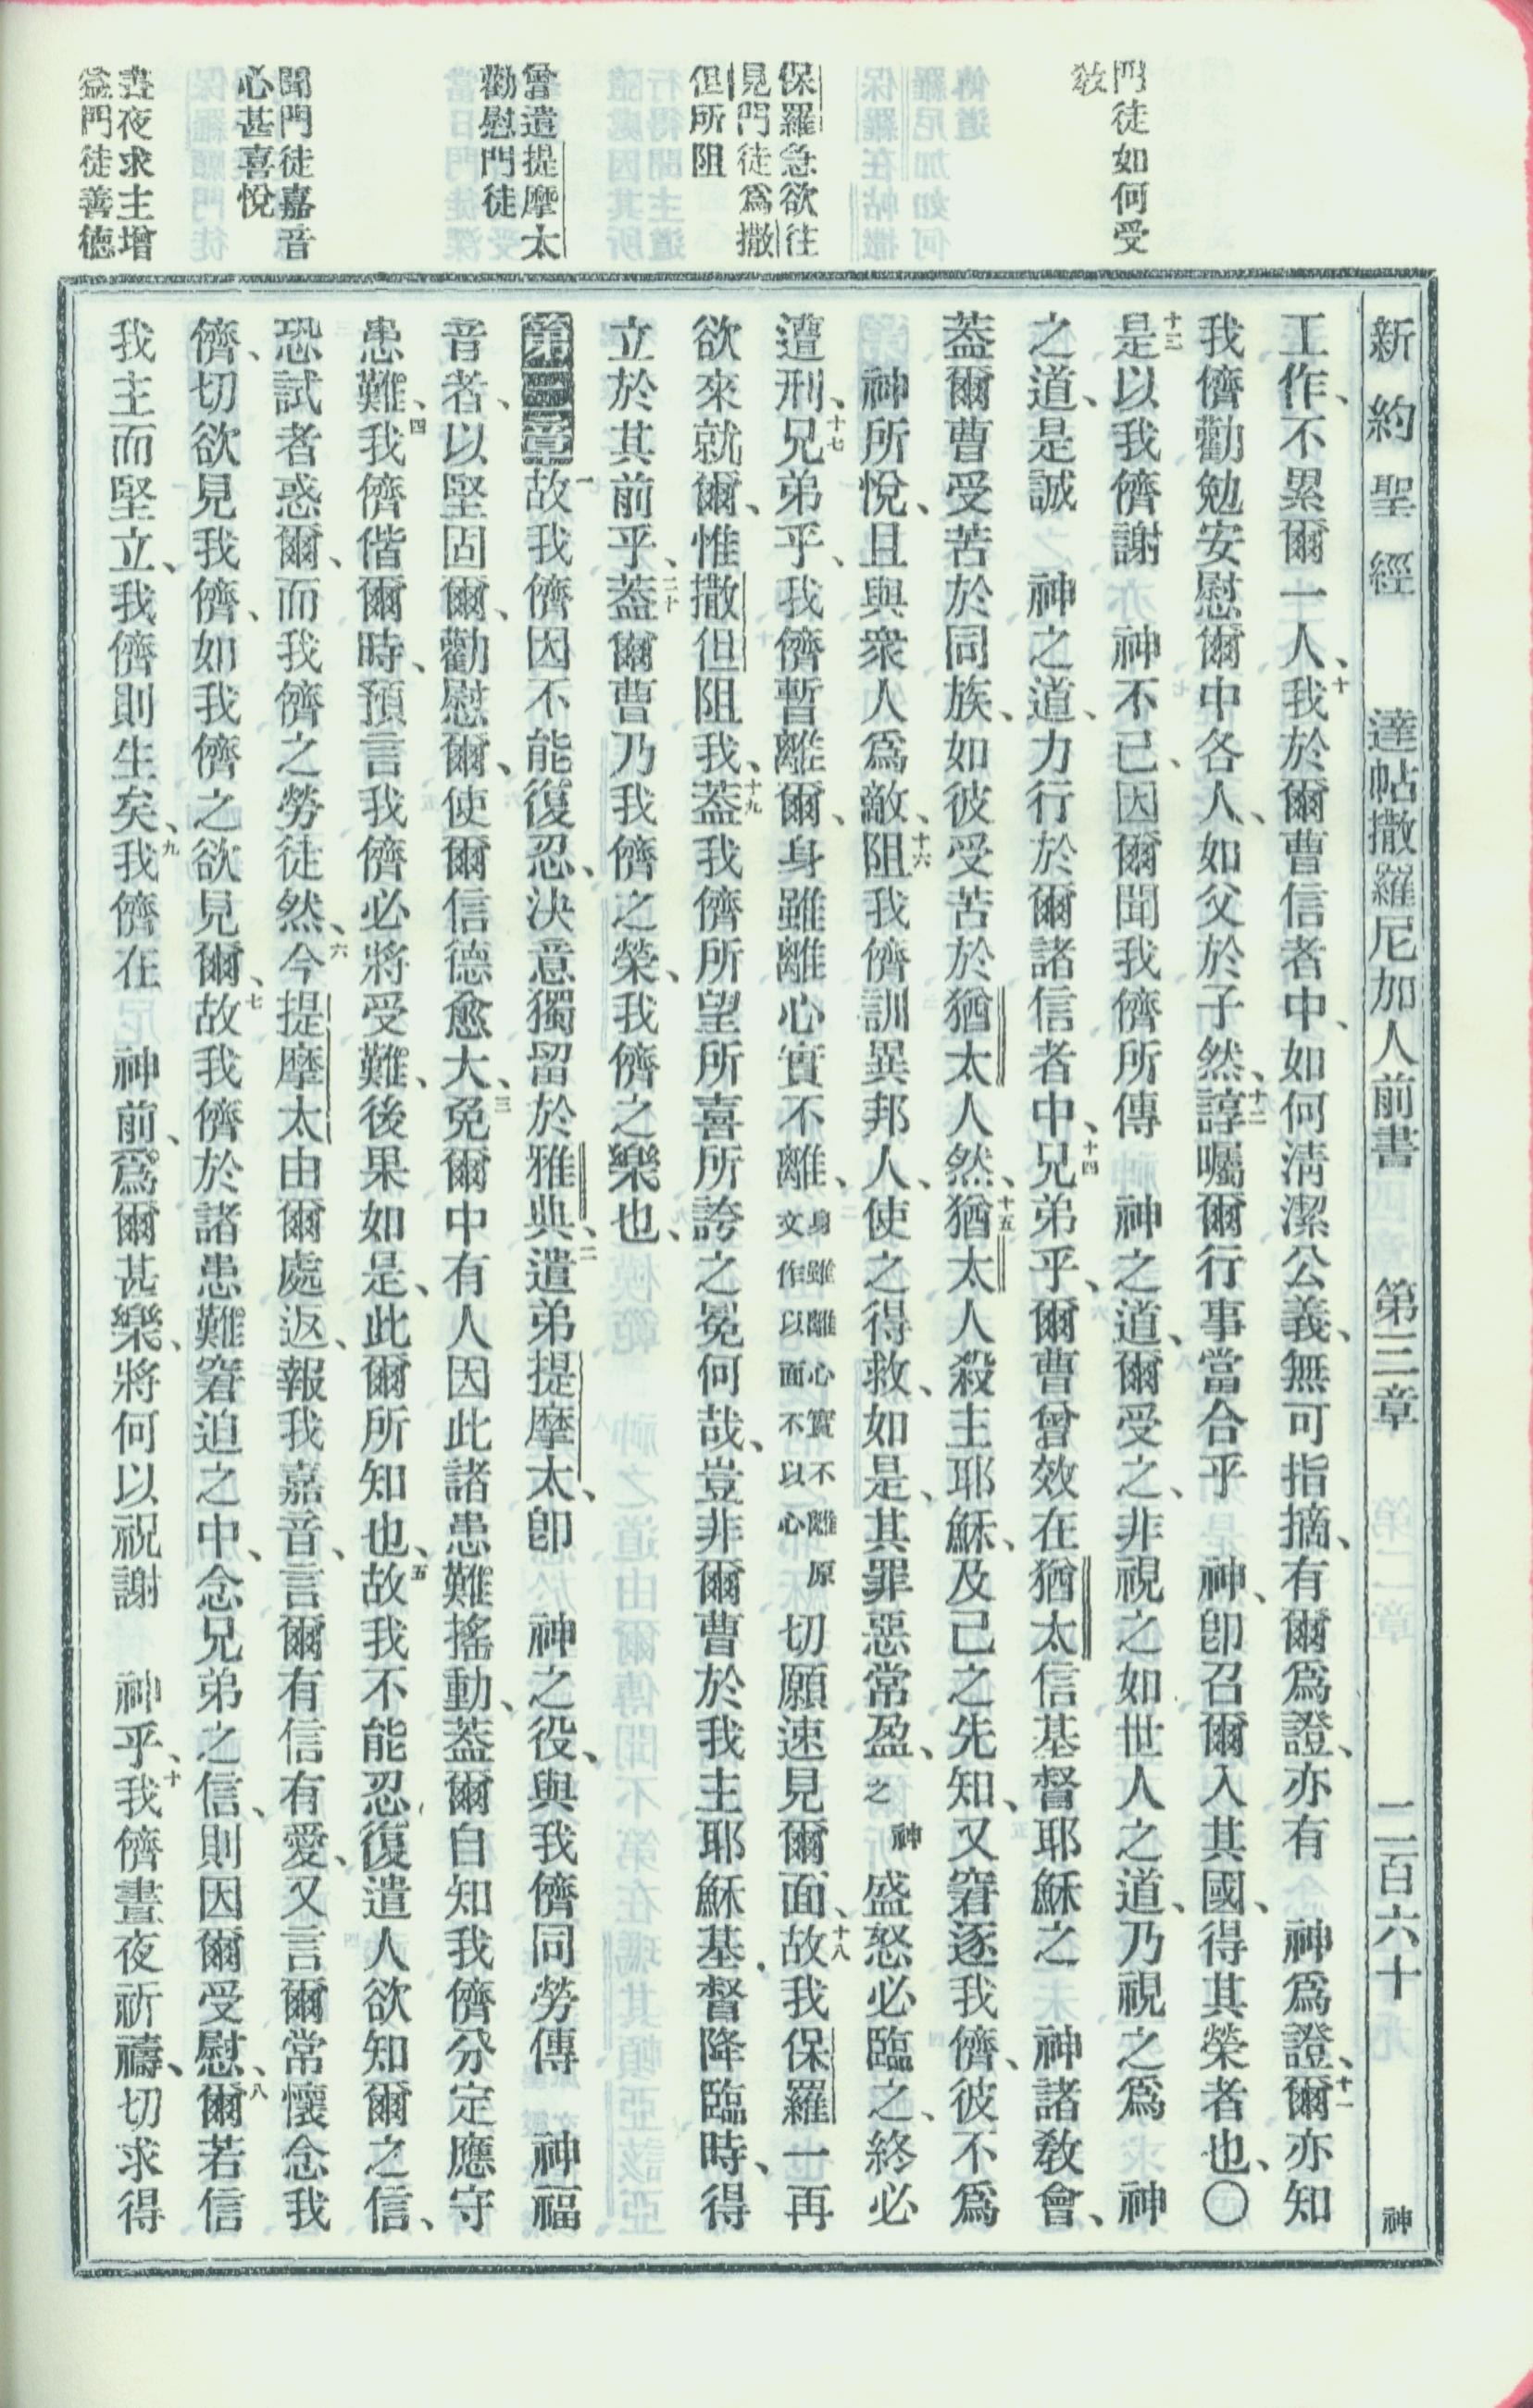 新約聖經 達帖撒羅尼加人前書 第三章 二百六十 神
門徒如何受
敎
保羅急欲往
見門徒爲撒
但所阻
曾遣提摩太
勸慰門徒
聞門徒嘉音
心甚喜悅
晝夜求主增
益門徒善德
工作、不累爾一人、十我於爾曹信者中、如何淸潔公義、無可指摘、有爾爲證、亦有 神爲證、十一爾亦知
我儕勸勉安慰爾中各人、如父於子然、十二諄囑爾行事當合乎 神、卽召爾入其國、得其榮者也、〇
十三是以我儕謝 神不已、因爾聞我儕所傳 神之道、爾受之、非視之如世人之道、乃視之爲 神
之道、是誠 神之道、力行於爾諸信者中、十四兄弟乎、爾曹曾效在猶太信基督耶穌之 神諸敎會、
蓋爾曹受苦於同族、如彼受苦於猶太人然、十五猶太人殺主耶穌、及己之先知、又窘逐我儕、彼不爲
神所悅、且與衆人爲敵、十六阻我儕訓異邦人、使之得救、如是、其罪惡常盈、神之盛怒必臨之、終必
遭刑、十七兄弟乎、我儕暫離爾、身雖離心實不離、身雖離心實不離原文作以面不以心切願速見爾面、十八故我保羅一再
欲來就爾、惟撒但阻我、十九蓋我儕所望所喜所誇之冕何哉、豈非爾曹於我主耶穌基督降臨時、得
立於其前乎、二十蓋爾曹乃我儕之榮、我儕之樂也、
第三章 一故我儕因不能復忍、決意獨留於雅典、二遣弟提摩太、卽 神之役、與我儕同勞傳 神福
音者、以堅固爾、勸慰爾、使爾信德愈大、三免爾中有人因此諸患難搖動、蓋爾自知我儕分定應守
患難、四我儕偕爾時、預言我儕必將受難、後果如是、此爾所知也、五故我不能忍、復遣人欲知爾之信、
恐試者惑爾、而我儕之勞徒然、六今提摩太由爾處返、報我嘉音、言爾有信有愛、又言爾常懷念我
儕、切欲見我儕、如我儕之欲見爾、七故我儕於諸患難窘迫之中、念兄弟之信、則因爾受慰、八爾若信
我主而堅立、我儕則生矣、九我儕在 神前、爲爾甚樂、將何以祝謝 神乎、十我儕晝夜祈禱、切求得